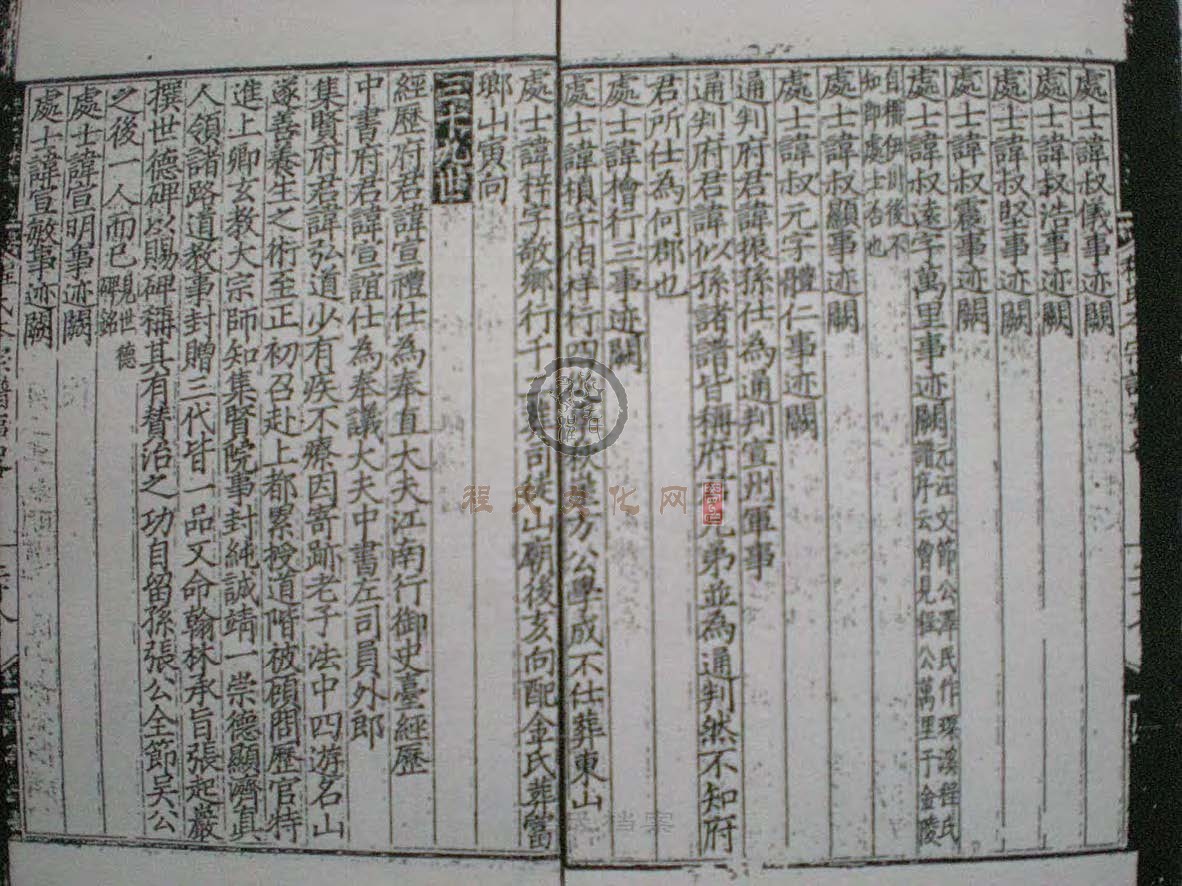 處士諱叔儀事迹闕
處士諱叔浩事迹闕
處士諱叔堅事迹闕
處士諱叔震事迹闕
處士諱叔遠字萬里事迹闕 汪文節公澤民作環溪程氏譜序云曾見程公萬里于金陵
自稱伊川後不知即處士否也
處士諱叔顯事迹闕
處士諱叔元字體仁事迹闕
通判府君諱振孫仕為通判宣州軍事
通判府君諱似孫諸譜皆稱府君兄弟並為通判然不知府
君所仕為何郡也
處士諱檜行三事迹闕
處士諱楨字伯祥行四 公學成不仕葬東山
處士諱梓字敬鄉行千 司 山廟後亥向配金氏葬當
鄉山寅向
三十九世
經歷府君諱宣禮仕為奉直大夫江南行御史臺經歷
中書府君諱宣誼仕為奉議大夫中書左司員外郎
集賢府君諱弘道少有疾不療因寄跡老子法中四游名山
遂善養生之術至正初召赴上都累授道階被顧問歷官特
進上卿玄教大宗師知集賢院事封純誠靖一崇德顯濟真
人領諸路道教事封贈三代皆一品又命翰林承旨張起巖
撰世德碑以賜碑稱其有替治之功自留孫張公全節吳公
之後一人而已 見世德碑銘
處士諱宣明事迹闕
處士諱宣敏事迹闕
程氏文化网
档案